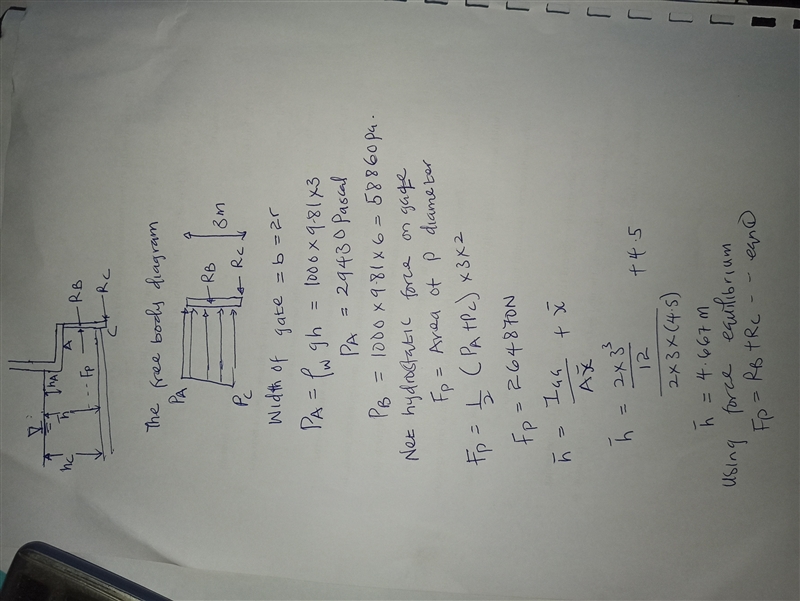 hc
h
hA
Fp
A
RB
RC
C
The free body diagram
PA
RB
3m
RC
PC
Width of gate = b = 2r
PA = ρw gh = 1000 x 9.81 x 3
PA = 29430 Pascal
PB = 1000 x 9.81 x 6 = 58860 pa.
Net hydrostatic force on gate
Fp = Area of p diameter
Fp = 1/2 (PA + PC) x 3 x 2
Fp = 264870N
h̄ = IGG / Ax̄ + x̄
h̄ = (2 x 3³ / 12) / (2 x 3 x (4.5)) + 4.5
h̄ = 4.667 M
Using force equilibrium
Fp = RB + RC - - eqn ①